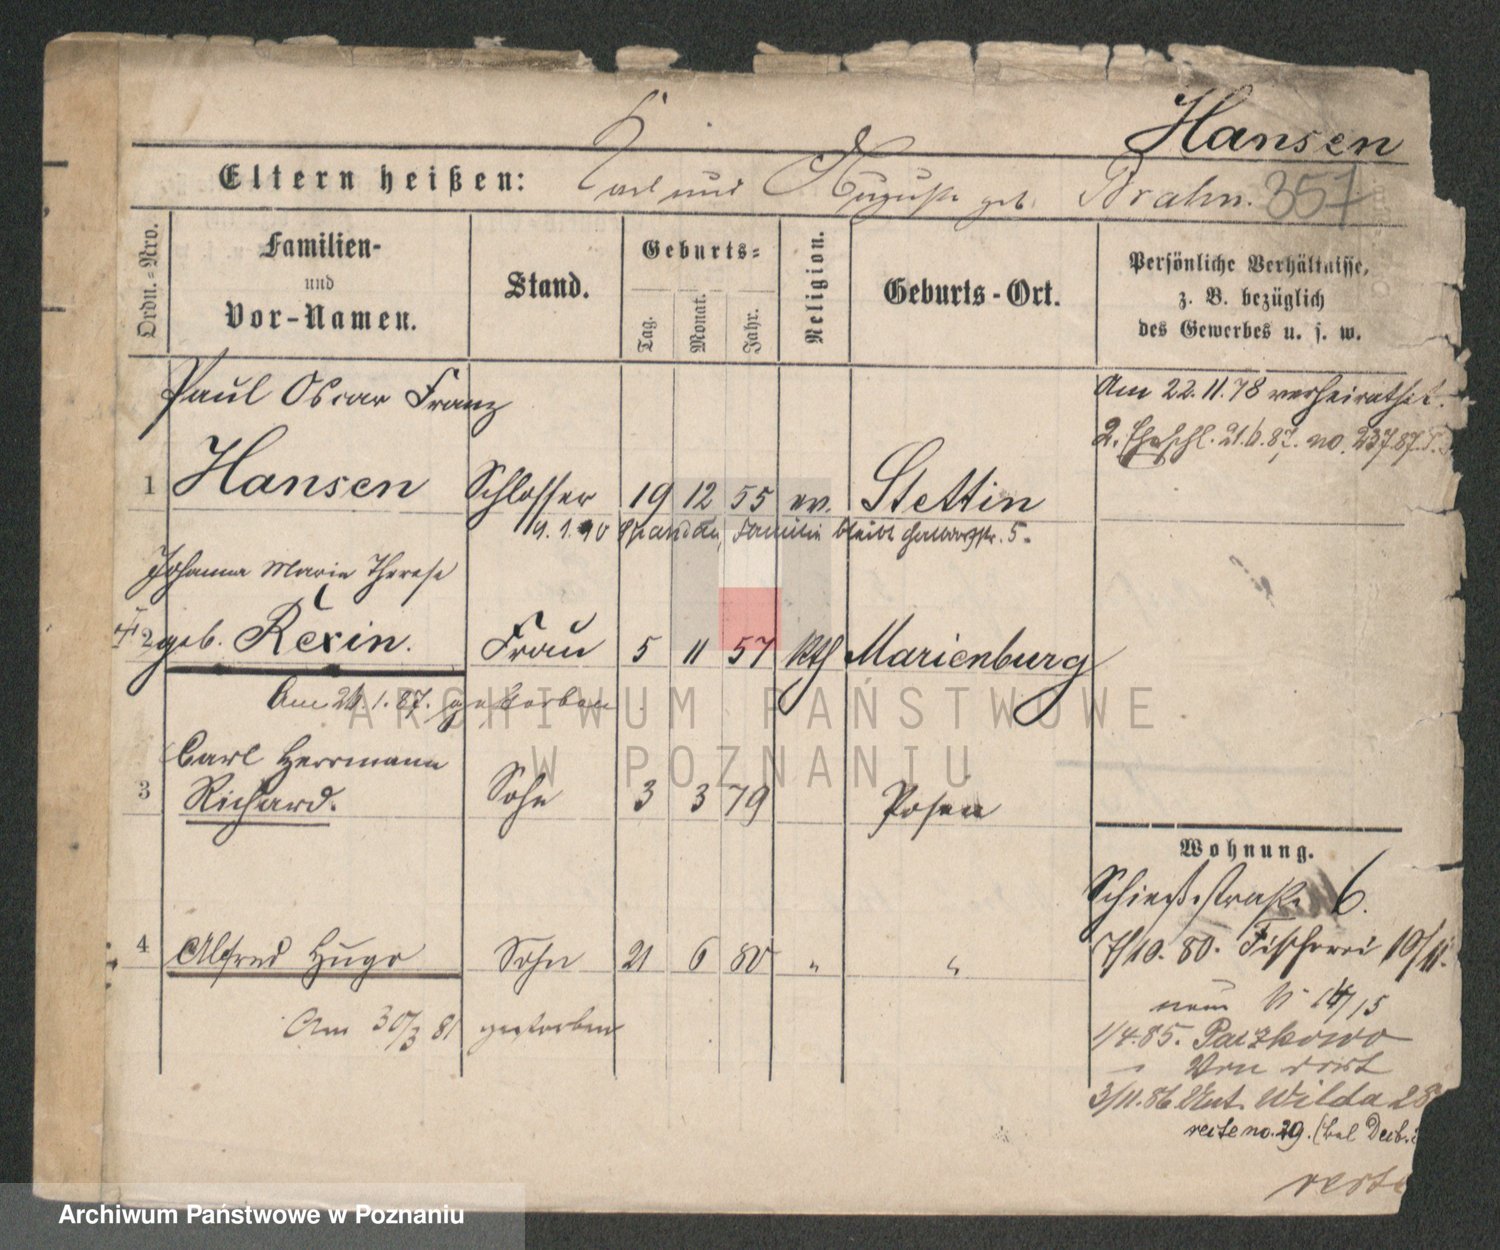 Hansen
Eltern heißen: Carl und Auguste geb. Brahn. 357
Ordn.=Nro.
Familien-
und
Vor-Namen.
Stand.
Geburts=
Tag.
Monat.
Jahr.
Religion.
Geburts-Ort.
Persönliche Verhältnisse,
z. B. bezüglich
des Gewerbes u. s. w.
Paul Oscar Franz
Am 22.11.78 verheirathet.
2. Eheschl. 21.6.87. no. 237.87.
1 Hansen Schlosser 19 12 55 ev. Stettin
9.1.90 Spandau, Familie bleibt 5.
Johanna Marie Therese
2 geb. Rexin. Frau 5 11 57 kth Marienburg
Am 26.1.87. gestorben
ARCHIWUM PAŃSTWOWE
W POZNANIU
Carl Herrmann
3 Richard. Sohn 3 3 79 Posen
Wohnung.
Schießstraße 6.
4 Alfred Hugo Sohn 21 6 80 " "
7/10.80. Fischerei 10/11.
neu N 14/15
Am 30/3 81 gestorben
1/4.85. Paczkowo
Von dort
3/11.86 Unt. Wilda 28
recte no. 29. (bei
recte
Archiwum Państwowe w Poznaniu